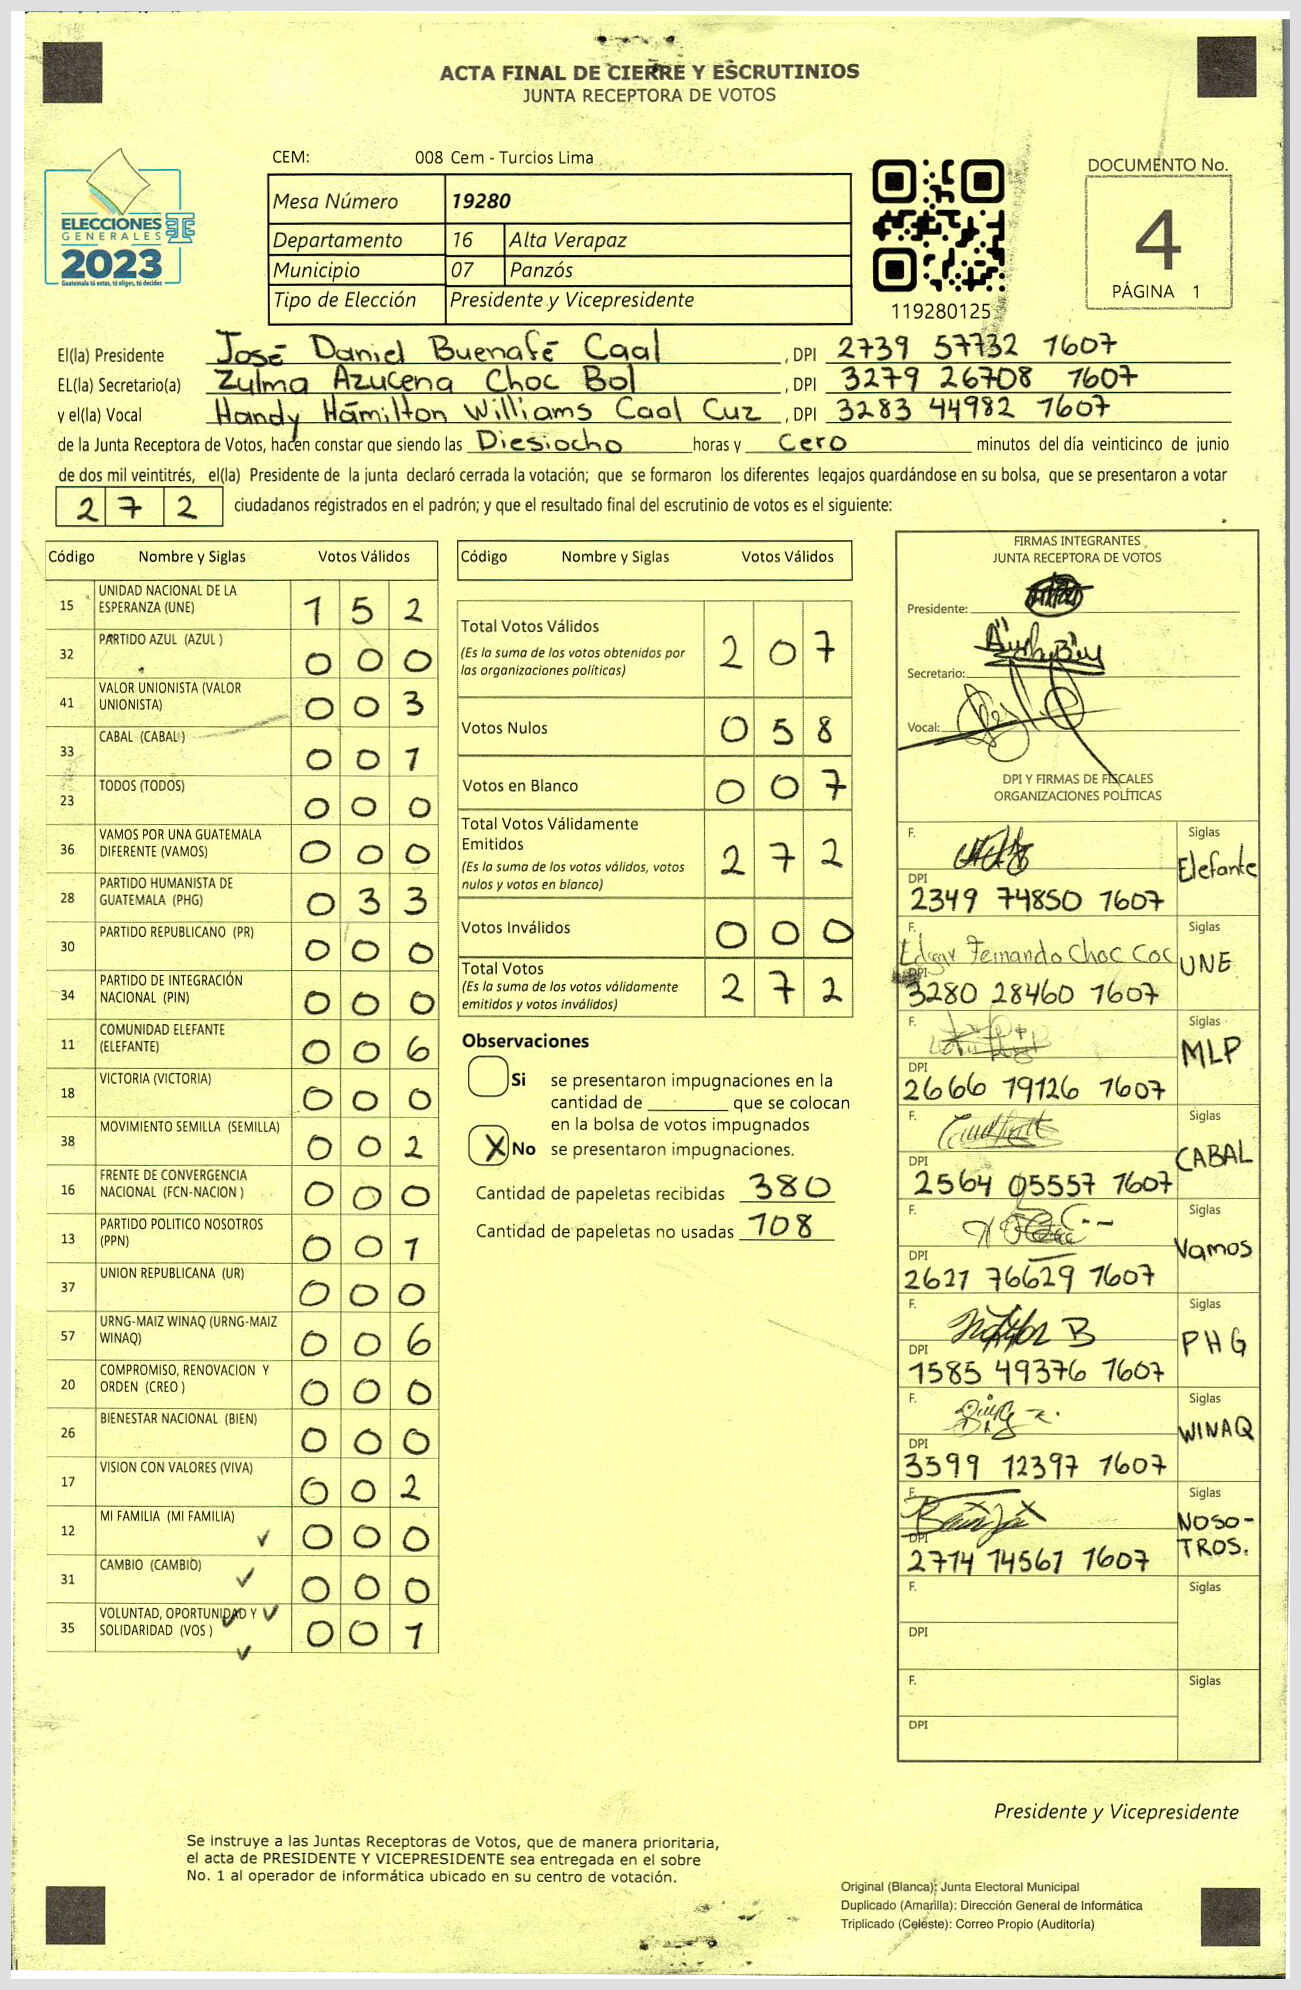 ACTA FINAL DE CIERRE Y ESCRUTINIOS
JUNTA RECEPTORA DE VOTOS
CEM: 008 Cem - Turcios Lima
ELECCIONES
GENERALES
2023
Guatemala tú votas, tú eliges, tú decides
Mesa Número 19280
Departamento 16 Alta Verapaz
Municipio 07 Panzós
Tipo de Elección Presidente y Vicepresidente
119280125
DOCUMENTO No.
4
PÁGINA 1
El(la) Presidente José Daniel Buenafé Caal , DPI 2739 57732 1607
EL(la) Secretario(a) Zylma Azucena Choc Bol , DPI 3279 26708 1607
y el(la) Vocal Handy Hámilton Williams Caal Cuz , DPI 3283 44982 1607
de la Junta Receptora de Votos, hacen constar que siendo las Diesiocho horas y cero minutos del día veinticinco de junio
de dos mil veintitrés, el(la) Presidente de la junta declaró cerrada la votación; que se formaron los diferentes legajos guardándose en su bolsa, que se presentaron a votar
2 7 2 ciudadanos registrados en el padrón; y que el resultado final del escrutinio de votos es el siguiente:
Código Nombre y Siglas Votos Válidos
15 UNIDAD NACIONAL DE LA ESPERANZA (UNE) 1 5 2
32 PARTIDO AZUL (AZUL ) 0 0 0
41 VALOR UNIONISTA (VALOR UNIONISTA) 0 0 3
33 CABAL (CABAL ) 0 0 1
23 TODOS (TODOS) 0 0 0
36 VAMOS POR UNA GUATEMALA DIFERENTE (VAMOS) 0 0 0
28 PARTIDO HUMANISTA DE GUATEMALA (PHG) 0 3 3
30 PARTIDO REPUBLICANO (PR) 0 0 0
34 PARTIDO DE INTEGRACIÓN NACIONAL (PIN) 0 0 0
11 COMUNIDAD ELEFANTE (ELEFANTE) 0 0 6
18 VICTORIA (VICTORIA) 0 0 0
38 MOVIMIENTO SEMILLA (SEMILLA) 0 0 2
16 FRENTE DE CONVERGENCIA NACIONAL (FCN-NACION ) 0 0 0
13 PARTIDO POLITICO NOSOTROS (PPN) 0 0 1
37 UNION REPUBLICANA (UR) 0 0 0
57 URNG-MAIZ WINAQ (URNG-MAIZ WINAQ) 0 0 6
20 COMPROMISO, RENOVACION Y ORDEN (CREO ) 0 0 0
26 BIENESTAR NACIONAL (BIEN) 0 0 0
17 VISION CON VALORES (VIVA) 0 0 2
12 MI FAMILIA (MI FAMILIA) 0 0 0
31 CAMBIO (CAMBIO) 0 0 0
35 VOLUNTAD, OPORTUNIDAD Y SOLIDARIDAD (VOS ) 0 0 1
Código Nombre y Siglas Votos Válidos
Total Votos Válidos 2 0 7
(Es la suma de los votos obtenidos por
las organizaciones políticas)
Votos Nulos 0 5 8
Votos en Blanco 0 0 7
Total Votos Válidamente
Emitidos 2 7 2
(Es la suma de los votos válidos, votos
nulos y votos en blanco)
Votos Inválidos 0 0 0
Total Votos 2 7 2
(Es la suma de los votos válidamente
emitidos y votos inválidos)
Observaciones
Si se presentaron impugnaciones en la
cantidad de ________ que se colocan
en la bolsa de votos impugnados
X No se presentaron impugnaciones.
Cantidad de papeletas recibidas 380
Cantidad de papeletas no usadas 108
FIRMAS INTEGRANTES
JUNTA RECEPTORA DE VOTOS
Presidente:
Secretario:
Vocal:
DPI Y FIRMAS DE FISCALES
ORGANIZACIONES POLÍTICAS
F. Siglas
Elefante
DPI
2349 74850 1607
F. Siglas
Edgar Fernando Choc Coc UNE
DPI
3280 28460 1607
F. Siglas
MLP
DPI
2666 19126 1607
F. Siglas
CABAL
DPI
2564 05557 1607
F. Siglas
Vamos
DPI
2621 76629 1607
F. Siglas
PHG
DPI
1585 49376 1607
F. Siglas
WINAQ
DPI
3599 12397 1607
F. Siglas
NOSO-
TROS.
DPI
2714 14561 1607
F. Siglas
DPI
F. Siglas
DPI
Presidente y Vicepresidente
Se instruye a las Juntas Receptoras de Votos, que de manera prioritaria,
el acta de PRESIDENTE Y VICEPRESIDENTE sea entregada en el sobre
No. 1 al operador de informática ubicado en su centro de votación.
Original (Blanca): Junta Electoral Municipal
Duplicado (Amarilla): Dirección General de Informática
Triplicado (Celeste): Correo Propio (Auditoría)